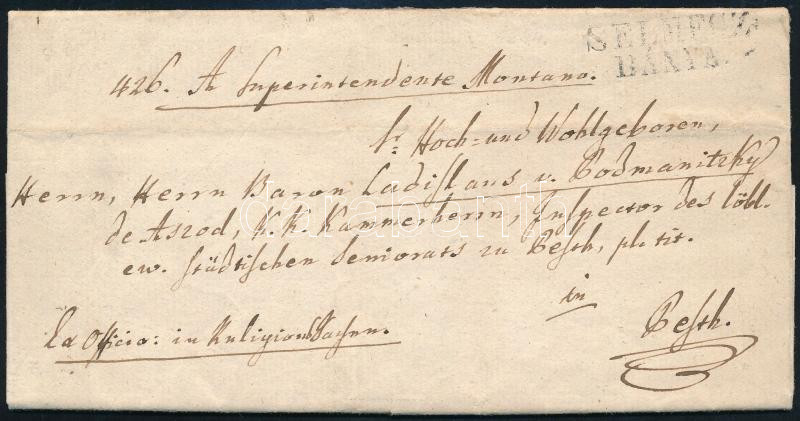 SELMECZ
BÁNYA.
426. A Superintendente Montano.
Sr. Hoch- und Wohlgeboren,
Herrn, Herrn Baron Ladislaus v. Podmanitzky
de Aszod, K. K. Kammerherrn, Inspector des löbl.
ew. städtischen Seniorats zu Pesth, pl. tit.
in
Pesth.
Ex Officio: in Religionssachen.